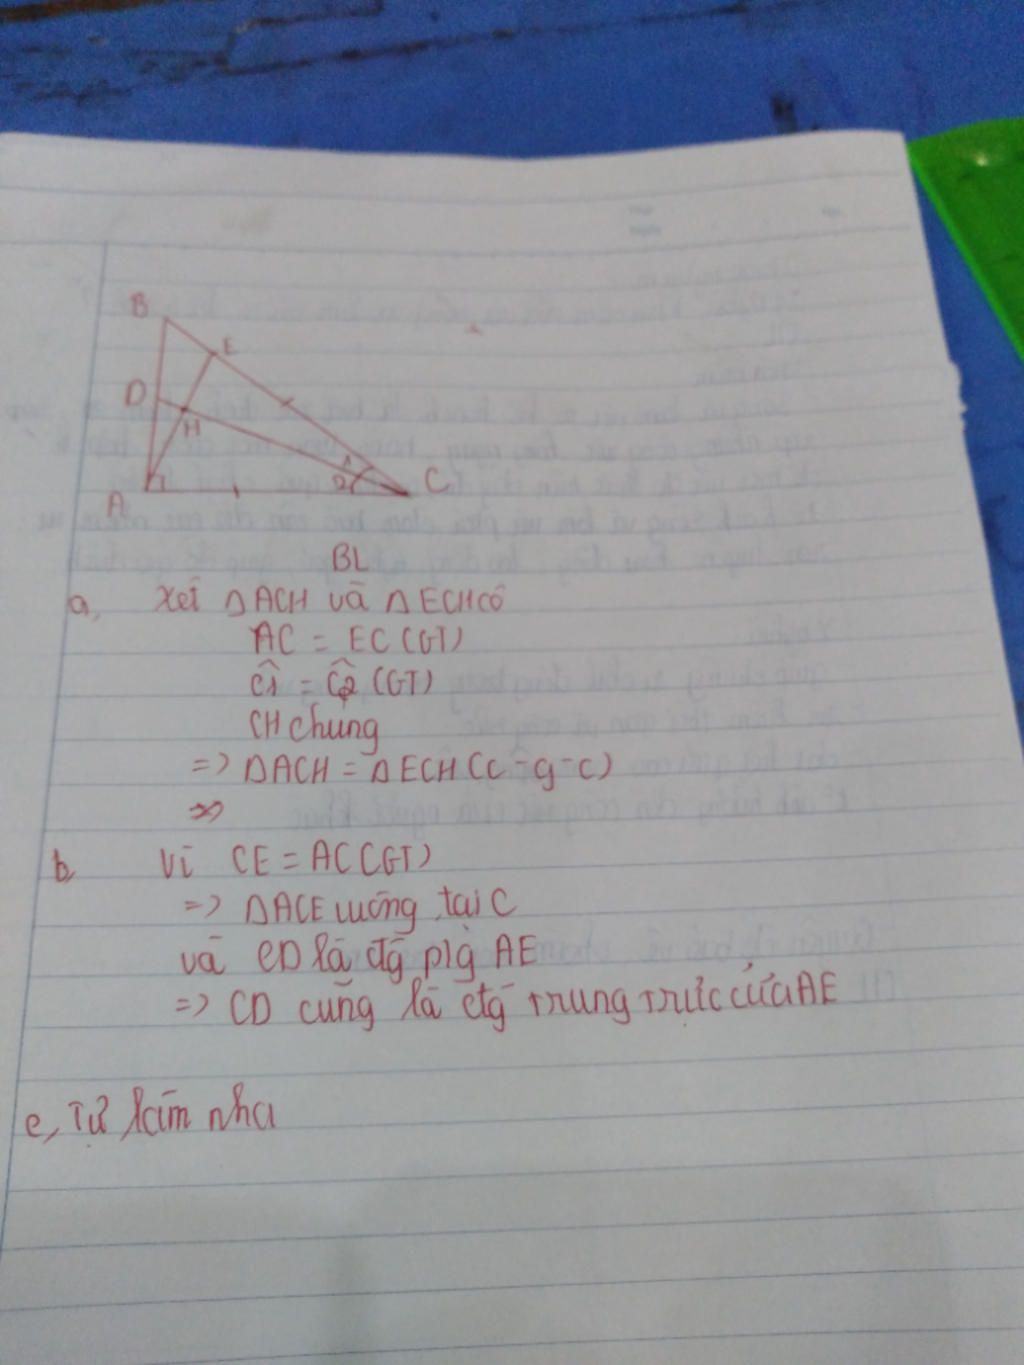 B
E
D
H
1
2
A
C
BL
a, Xét ΔACH và ΔECH có
AC = EC (GT)
Ĉ1 = Ĉ2 (GT)
CH chung
=> ΔACH = ΔECH (c-g-c)
b, Vì CE = AC (GT)
=> ΔACE vuông tại C
và CD là đg p/g AE
=> CD cũng là đg trung trực của AE
c, Tự làm nha